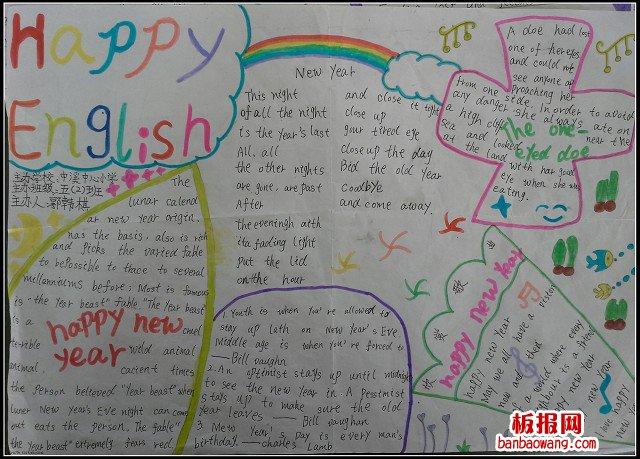 Happy
English
主办学校:中溪中心小学
主办班级:五(2)班
主办人:郭韩椹
The
lunar calend
ar new year origin,
has the basis, also is rich
and Picks the varied fable
to be possible to trace to several
millenniums before; Most is famous
is "the Year beast" fable. "The Year beast"
is a cruel
terrible wild animal
animal, ancient times
the person believed "Year beast" when
lunar New Year's Eve night can come
out eats the person. The fable"
the Year beast" extremely fears red,
happy new
year
New Year
This night
of all the night
is the year's last
All, all
the other nights
are gone, are past
After
the eveningh atth
ita fading light
Put the lid
on the hour
and close it tight
close up
your tired eye
close up the day
Bid the old year
Goodbye
and come away.
A doe had lost
one of her eyes
and could not
see anyone ap
Proaching her
from one side. In order to avoid
any danger she always ate on
a high cliff near the
sea and looked
at the land with her good
eye when she was
eating.
The one-
eyed doe
1. Youth is when you're allowed to
stay up lath on New Year's Eve.
Middle age is when you're forced to.
—Bill vaughn
2. An optimist stays up until midnight
to see the new year in A Pessimist
stays up to make sure the old
year leaves — Bill vaughan
3 Mew Year's Day is every man's
birthday. — charles Lamb
happy new year
happy new year
May we all have a vision
now and then
a world where every
neighbour is a friend
happy new year
new year
happy
板报网
banbaowang.com